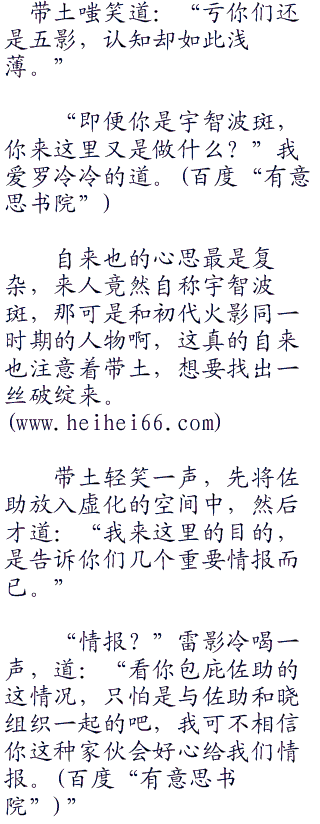 带土嗤笑道：“亏你们还
是五影，认知却如此浅
薄。”
“即便你是宇智波斑，
你来这里又是做什么？”我
爱罗冷冷的道。(百度“有意
思书院”)
自来也的心思最是复
杂，来人竟然自称宇智波
斑，那可是和初代火影同一
时期的人物啊，这真的自来
也注意着带土，想要找出一
丝破绽来。
(www.heihei66.com)
带土轻笑一声，先将佐
助放入虚化的空间中，然后
才道：“我来这里的目的，
是告诉你们几个重要情报而
已。”
“情报？”雷影冷喝一
声，道：“看你包庇佐助的
这情况，只怕是与佐助和晓
组织一起的吧，我可不相信
你这种家伙会好心给我们情
报。(百度“有意思书
院”)”